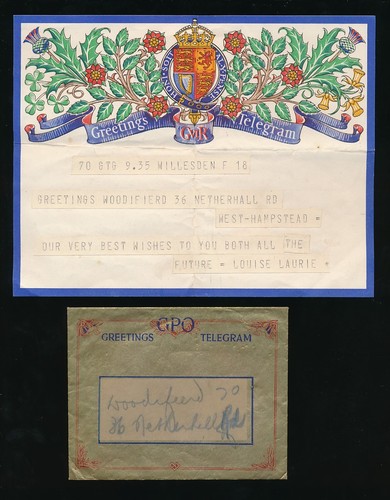 HONI SOIT QUI MAL Y PENSE
Greetings GviR Telegram
70 GTG 9.35 WILLESDEN F 18
GREETINGS WOODIFIERD 36 NETHERHALL RD
WEST-HAMPSTEAD =
OUR VERY BEST WISHES TO YOU BOTH ALL THE
FUTURE = LOUISE LAURIE +
GPO
GREETINGS TELEGRAM
Woodifeerd 70
36 Netherhall Rd